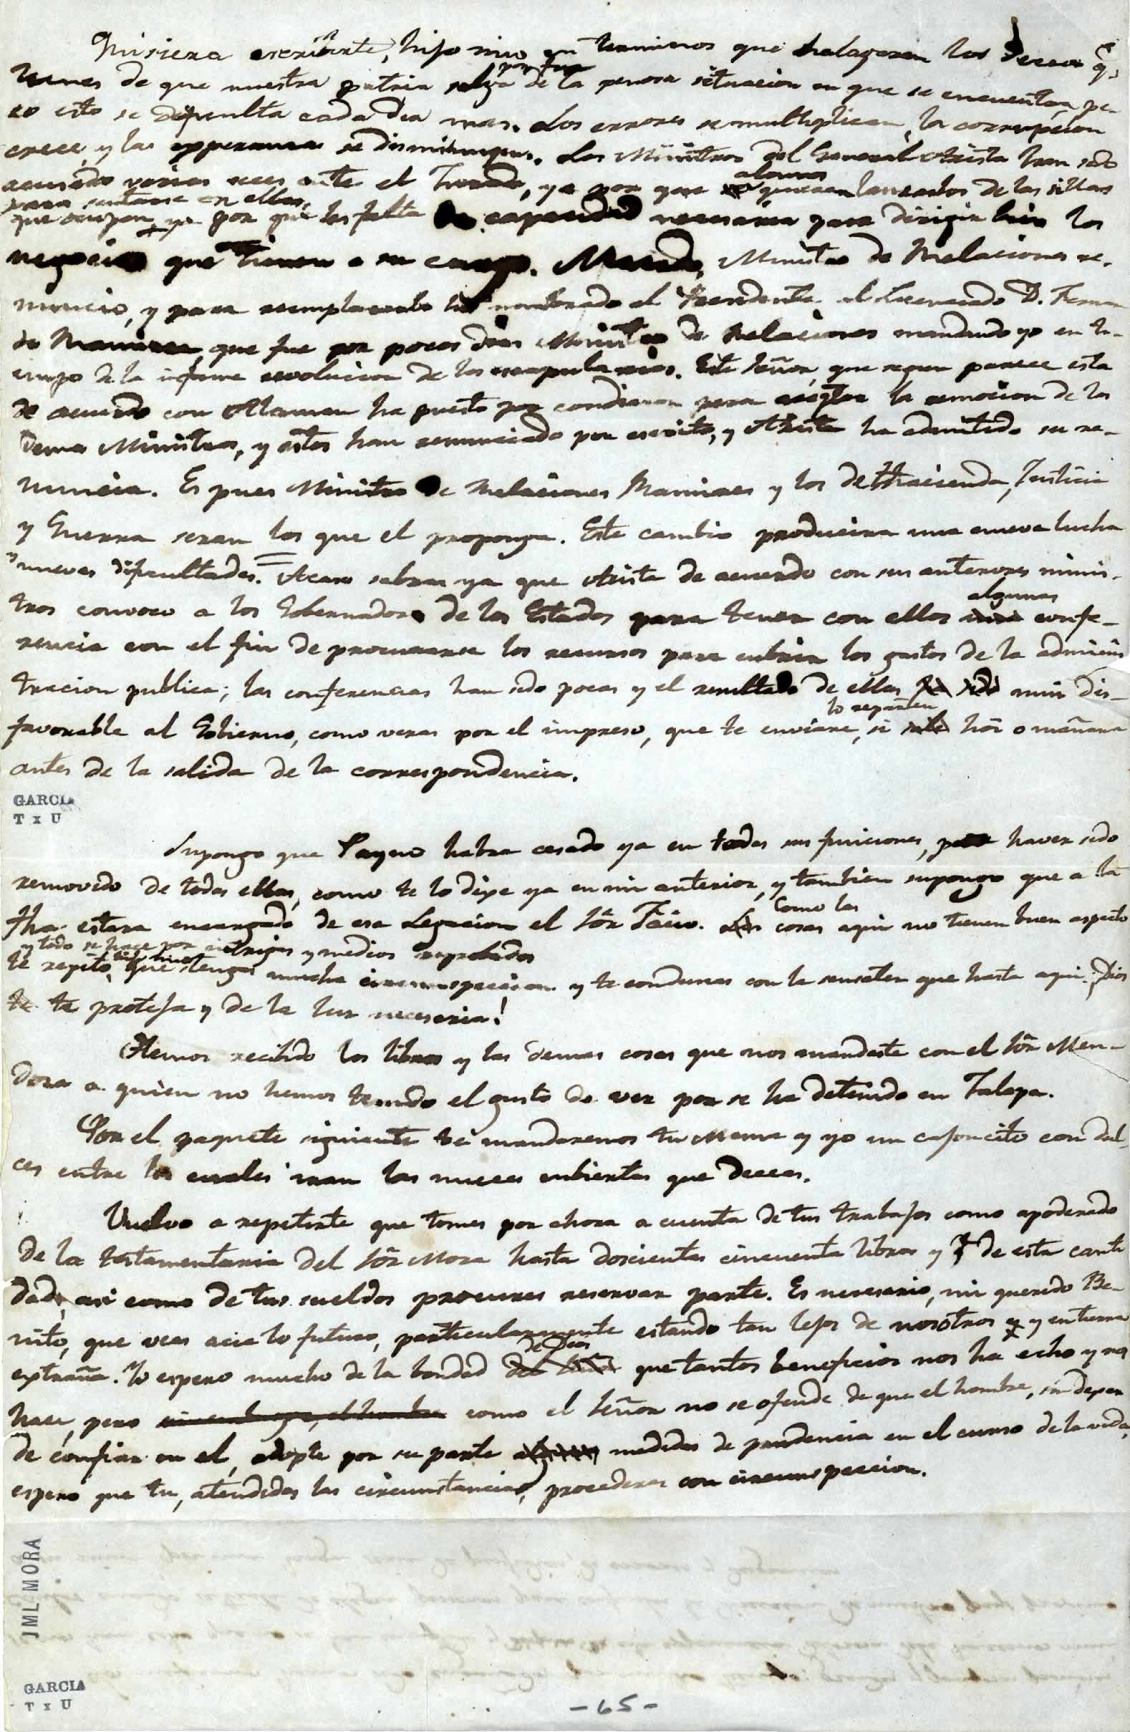 Quisiera escribirte, hijo mio en terminos que halagaran los deseos q.e
tienes de que nuestra patria salga por fin de la penosa situacion en que se encuentra, pe-
ro esto se dificulta cada dia mas. Los errores se multiplican, la corrupcion
crece, y las esperanzas se disminuyen. Los Ministros del General Arista han sido
acusados varias veces ante el Jurado, ya por que algunos quieran lanzarlos de las sillas
que ocupan para sentarse en ellas, ya por que les falta la capacidad necesaria para dirigir bien los
negocios que tienen a su cargo. Macedo, Ministro de Relaciones re-
nunció, y para reemplazarlo ha nombrado el Presidente al Licenciado D. Fernan
do Ramirez, que fue por pocos dias Ministro de Relaciones mandando yo en ti-
empo de la infame revolucion de los escapularios. Este Señor, que segun parece esta
de acuerdo con Alaman ha puesto por condicion para aceptar la remocion de los
demas Ministros, y estos han renunciado por escrito, y Arista ha admitido su re-
nuncia. Es pues Ministro de Relaciones Ramires y los de Hacienda, Justicia
y Guerra seran los que el proponga. Este cambio producira una nueva lucha
y nuevas dificultades. = Acaso sabras ya que Arista de acuerdo con sus anteriores minis-
tros convocó a los Gobernadores de los Estados para tener con ellos algunas confe-
rencia con el fin de procurarse los recursos para cubrir los gastos de la adminis
tracion publica; las conferencias han sido pocas y el resultado de ellas ha sido mui des-
favorable al Gobierno, como veras por el impreso, que te enviaré, si lo reparten hoi o mañana
antes de la salida de la correspondencia.
GARCIA
T x U
Supongo que Payno habra cesado ya en todas sus funciones, haver sido
removido de todas ellas, como te lo dixe ya en mi anterior, y tambien supongo que a la
fha. estara encargado de esa Legacion el Sōr Facio. Como las cosas aqui no tienen buen aspecto
y todo se hace por intrigas y medios reprobados
te repito que tengas mucha circunspeccion y te conduzcas con la sensatez que hasta aqui. ¡Dios
te proteja y de la luz necesaria!
Hemos recibido los libros y las demas cosas que nos mandaste con el Sōr Men-
doza a quien no hemos tenido el gusto de ver por se ha detenido en Jalapa.
Por el paquete siguiente te mandaremos tu Mama y yo un cajoncito con dul-
ces entre los cuales iran las nueces cubiertas que deceas.
Vuelvo a repetirte que tomes por ahora a cuenta de tus trabajos como apoderado
de la testamentaria del Sōr Mora hasta docientas cincuenta libras y q.e de esta canti
dad, asi como de tus sueldos procures reservar parte. Es necesario, mi querido Be-
nito, que veas acia lo futuro, particularmente estando tan lejos de nosotros y en tierra
extraña. Yo espero mucho de la bondad de Dios que tantos beneficios nos ha echo y nos
hace, pero como el Señor no se ofende de que el hombre, sin dejar
de confiar en el, adopte por su parte medidas de prudencia en el curso de la vida,
espero que tu, atendidas las circunstancias, procederas con circunspeccion.
JML MORA
GARCIA
T x U
-65-